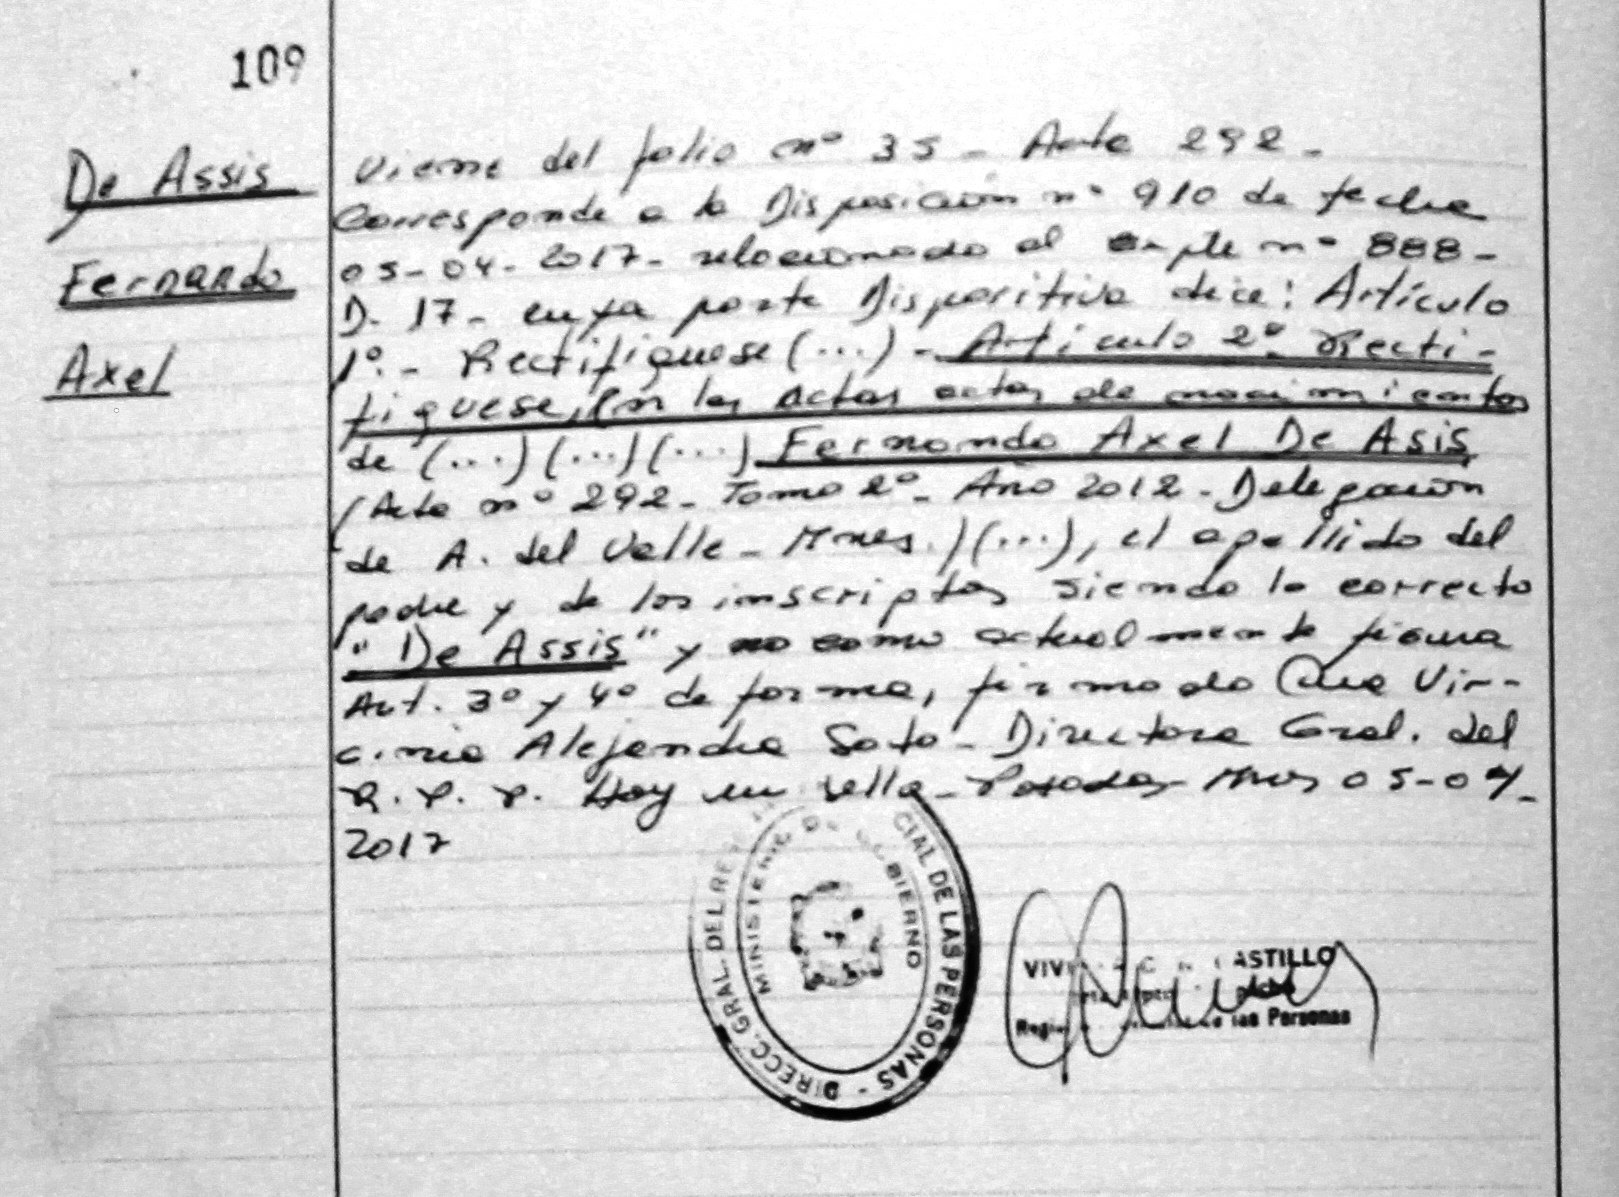 109
De Assis
Fernando
Axel
Viene del folio nº 35 - Acta 292 -
Corresponde a la Disposición nº 910 de fecha
05-04-2017- relacionado al Expte nº 888-
D- 17- cuya parte Dispositiva dice: Artículo
1º.- Rectifiquese (...) - Artículo 2º Recti-
fiquese, En las actas actas de nacimientos
de (...) (...) (...) Fernando Axel De Asis
(Acta nº 292- Tomo 2º- Año 2012- Delegación
de A. del Valle- Mnes.) (...), el apellido del
padre y de los inscriptos siendo lo correcto
"De Assis" y no como actualmente figura
Art. 3º y 4º de forma, firmado Dra Vir-
ginia Alejandra Soto- Directora Gral. del
R. P. P. Hay un sello- Posadas- Mnes 05-04-
2017
DIRECC. GRAL. DEL CIAL DE LAS PERSONAS -
MINISTERIO DE GOBIERNO
CASTILLO
las Personas